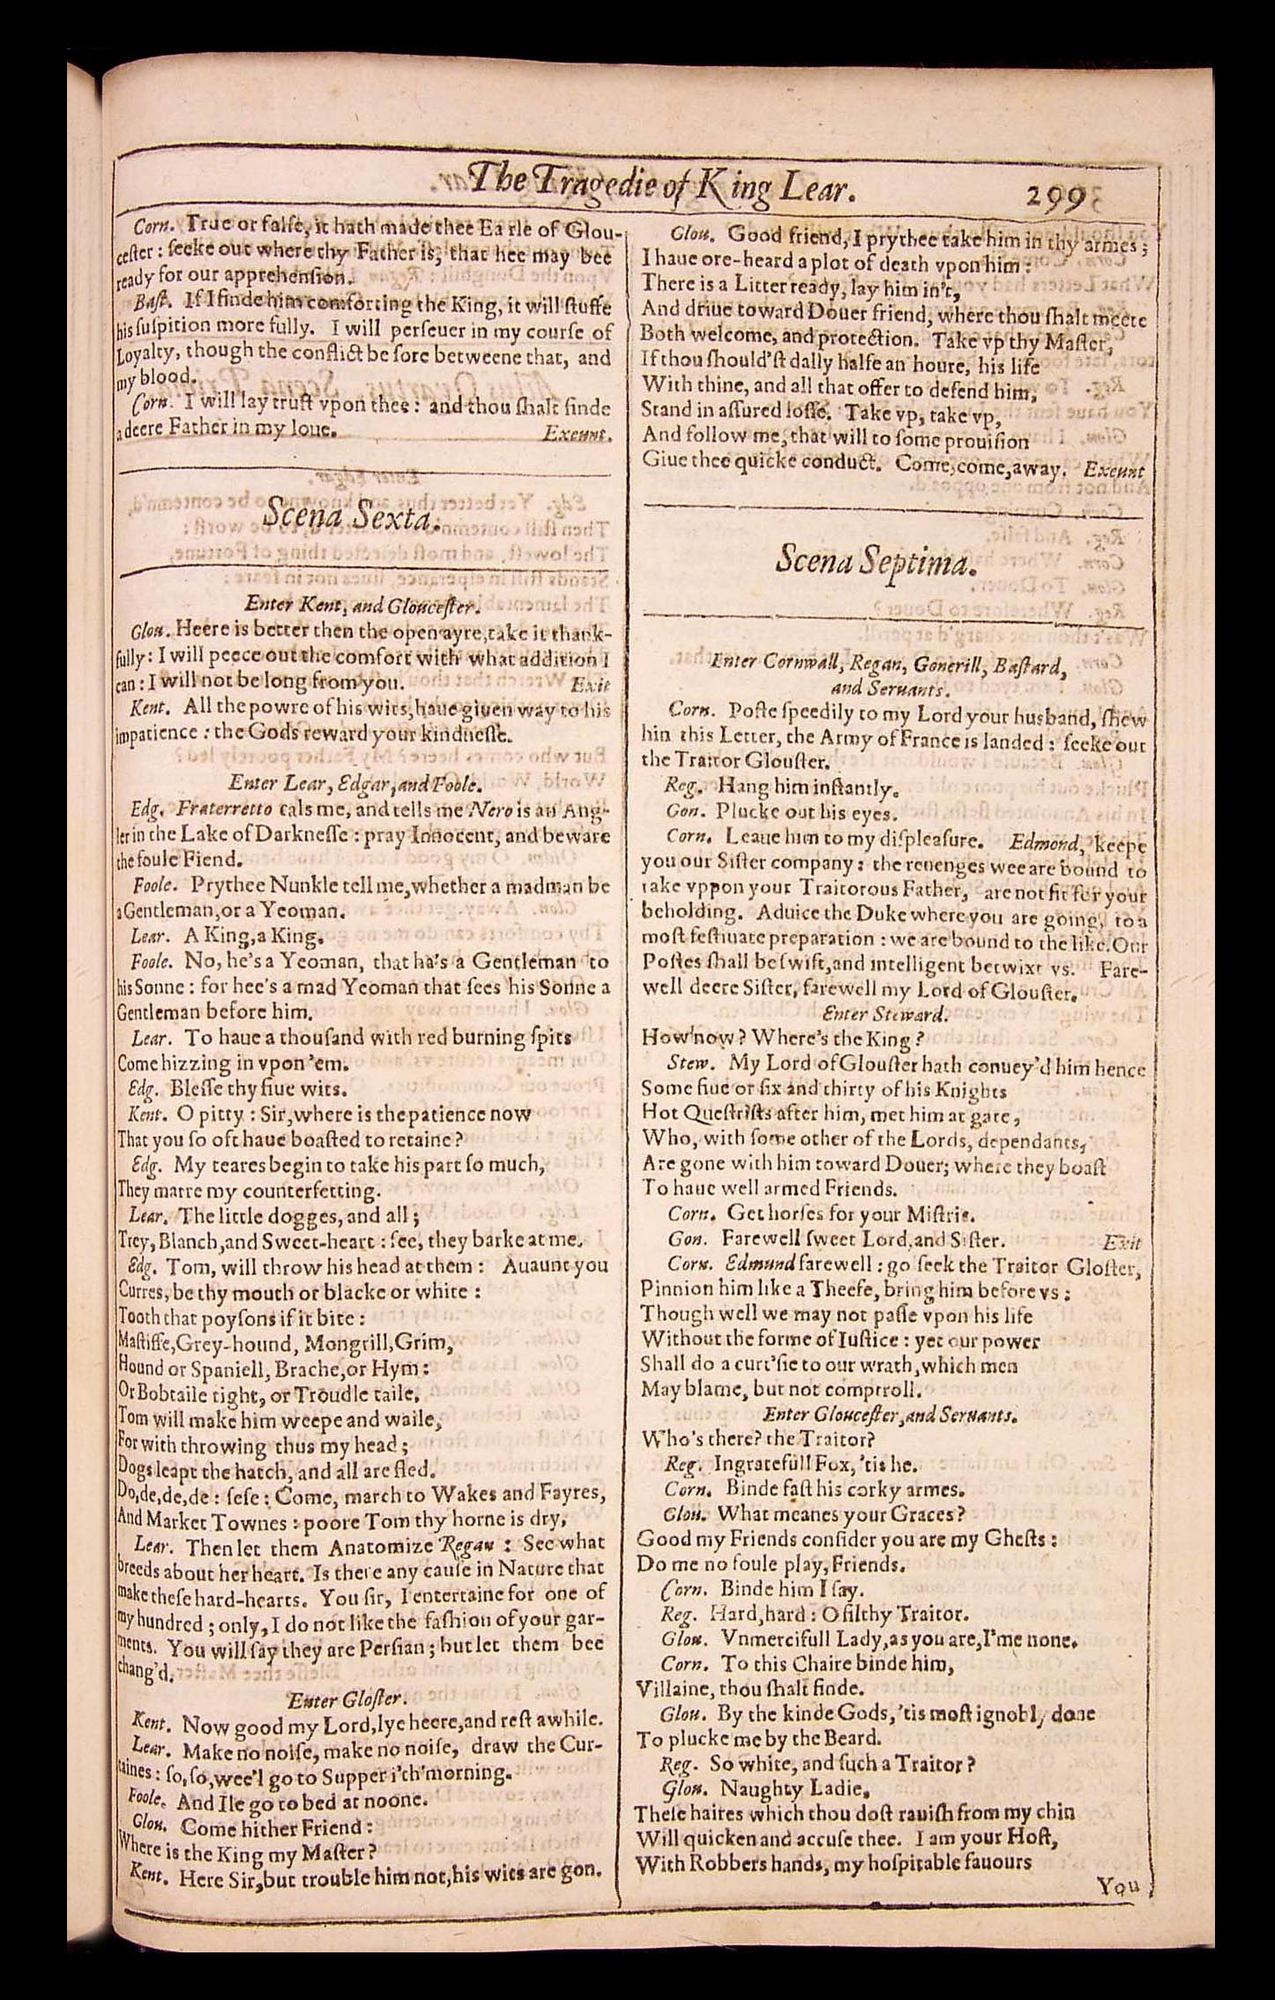 The Tragedie of King Lear. 299
Corn. True or false, it hath made thee Earle of Glou-
cester: seeke out where thy Father is, that hee may bee
ready for our apprehension.
Bast. If I finde him comforting the King, it will stuffe
his suspition more fully. I will perseuer in my course of
Loyalty, though the conflict be sore betweene that, and
my blood.
Corn. I will lay trust vpon thee: and thou shalt finde
a deere Father in my loue. Exeunt.
Scena Sexta.
Enter Kent, and Gloucester.
Glou. Heere is better then the open ayre, take it thank-
fully: I will peece out the comfort with what addition I
can: I will not be long from you. Exit
Kent. All the powre of his wits, haue giuen way to his
impatience: the Gods reward your kindnesse.
Enter Lear, Edgar, and Foole.
Edg. Fraterretto cals me, and tells me Nero is an Ang-
ler in the Lake of Darknesse: pray Innocent, and beware
the foule Fiend.
Foole. Prythee Nunkle tell me, whether a madman be
a Gentleman, or a Yeoman.
Lear. A King, a King.
Foole. No, he's a Yeoman, that ha's a Gentleman to
his Sonne: for hee's a mad Yeoman that sees his Sonne a
Gentleman before him.
Lear. To haue a thousand with red burning spits
Come hizzing in vpon 'em.
Edg. Blesse thy fiue wits.
Kent. O pitty: Sir, where is the patience now
That you so oft haue boasted to retaine?
Edg. My teares begin to take his part so much,
They marre my counterfetting.
Lear. The little dogges, and all;
Trey, Blanch, and Sweet-heart: see, they barke at me.
Edg. Tom, will throw his head at them: Auaunt you
Curres, be thy mouth or blacke or white:
Tooth that poysons if it bite:
Mastiffe, Grey-hound, Mongrill, Grim,
Hound or Spaniell, Brache, or Hym:
Or Bobtaile tight, or Troudle taile,
Tom will make him weepe and waile,
For with throwing thus my head;
Dogs leapt the hatch, and all are fled.
Do, de, de, de: sese: Come, march to Wakes and Fayres,
And Market Townes: poore Tom thy horne is dry,
Lear. Then let them Anatomize Regan: See what
breeds about her heart. Is there any cause in Nature that
make these hard-hearts. You sir, I entertaine for one of
my hundred; only, I do not like the fashion of your gar-
ments. You will say they are Persian; but let them bee
chang'd.
Enter Gloster.
Kent. Now good my Lord, lye heere, and rest awhile.
Lear. Make no noise, make no noise, draw the Cur-
taines: so, so, wee'l go to Supper i'th'morning.
Foole. And Ile go to bed at noone.
Glou. Come hither Friend:
Where is the King my Master?
Kent. Here Sir, but trouble him not, his wits are gon.
Glou. Good friend, I prythee take him in thy armes;
I haue ore-heard a plot of death vpon him:
There is a Litter ready, lay him in't,
And driue toward Douer friend, where thou shalt meete
Both welcome, and protection. Take vp thy Master,
If thou should'st dally halfe an houre, his life
With thine, and all that offer to defend him,
Stand in assured losse. Take vp, take vp,
And follow me, that will to some prouision
Giue thee quicke conduct. Come, come, away. Exeunt
Scena Septima.
Enter Cornwall, Regan, Gonerill, Bastard,
and Seruants.
Corn. Poste speedily to my Lord your husband, shew
him this Letter, the Army of France is landed: seeke out
the Traitor Glouster.
Reg. Hang him instantly.
Gon. Plucke out his eyes.
Corn. Leaue him to my displeasure. Edmond, keepe
you our Sister company: the reuenges wee are bound to
take vppon your Traitorous Father, are not fit for your
beholding. Aduice the Duke where you are going, to a
most festiuate preparation: we are bound to the like. Our
Postes shall be swift, and intelligent betwixt vs. Fare-
well deere Sister, farewell my Lord of Glouster.
Enter Steward.
How now? Where's the King?
Stew. My Lord of Glouster hath conuey'd him hence
Some fiue or six and thirty of his Knights
Hot Questrists after him, met him at gate,
Who, with some other of the Lords, dependants,
Are gone with him toward Douer; where they boast
To haue well armed Friends.
Corn. Get horses for your Mistris.
Gon. Farewell sweet Lord, and Sister. Exit
Corn. Edmund farewell: go seek the Traitor Gloster,
Pinnion him like a Theefe, bring him before vs:
Though well we may not passe vpon his life
Without the forme of Iustice: yet our power
Shall do a curt'sie to our wrath, which men
May blame, but not comptroll.
Enter Gloucester, and Seruants.
Who's there? the Traitor?
Reg. Ingratefull Fox, 'tis he.
Corn. Binde fast his corky armes.
Glou. What meanes your Graces?
Good my Friends consider you are my Ghests:
Do me no foule play, Friends.
Corn. Binde him I say.
Reg. Hard, hard: O filthy Traitor.
Glou. Vnmercifull Lady, as you are, I'me none.
Corn. To this Chaire binde him,
Villaine, thou shalt finde.
Glou. By the kinde Gods, 'tis most ignobly done
To plucke me by the Beard.
Reg. So white, and such a Traitor?
Glou. Naughty Ladie,
These haires which thou dost rauish from my chin
Will quicken and accuse thee. I am your Host,
With Robbers hands, my hospitable fauours
You